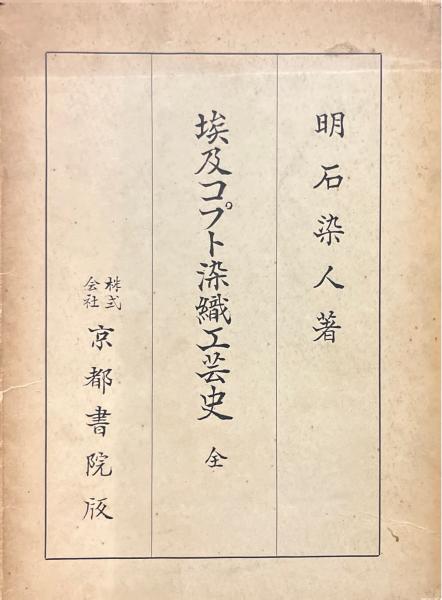 明石染人著
埃及コプト染織工芸史 全
株式会社 京都書院版